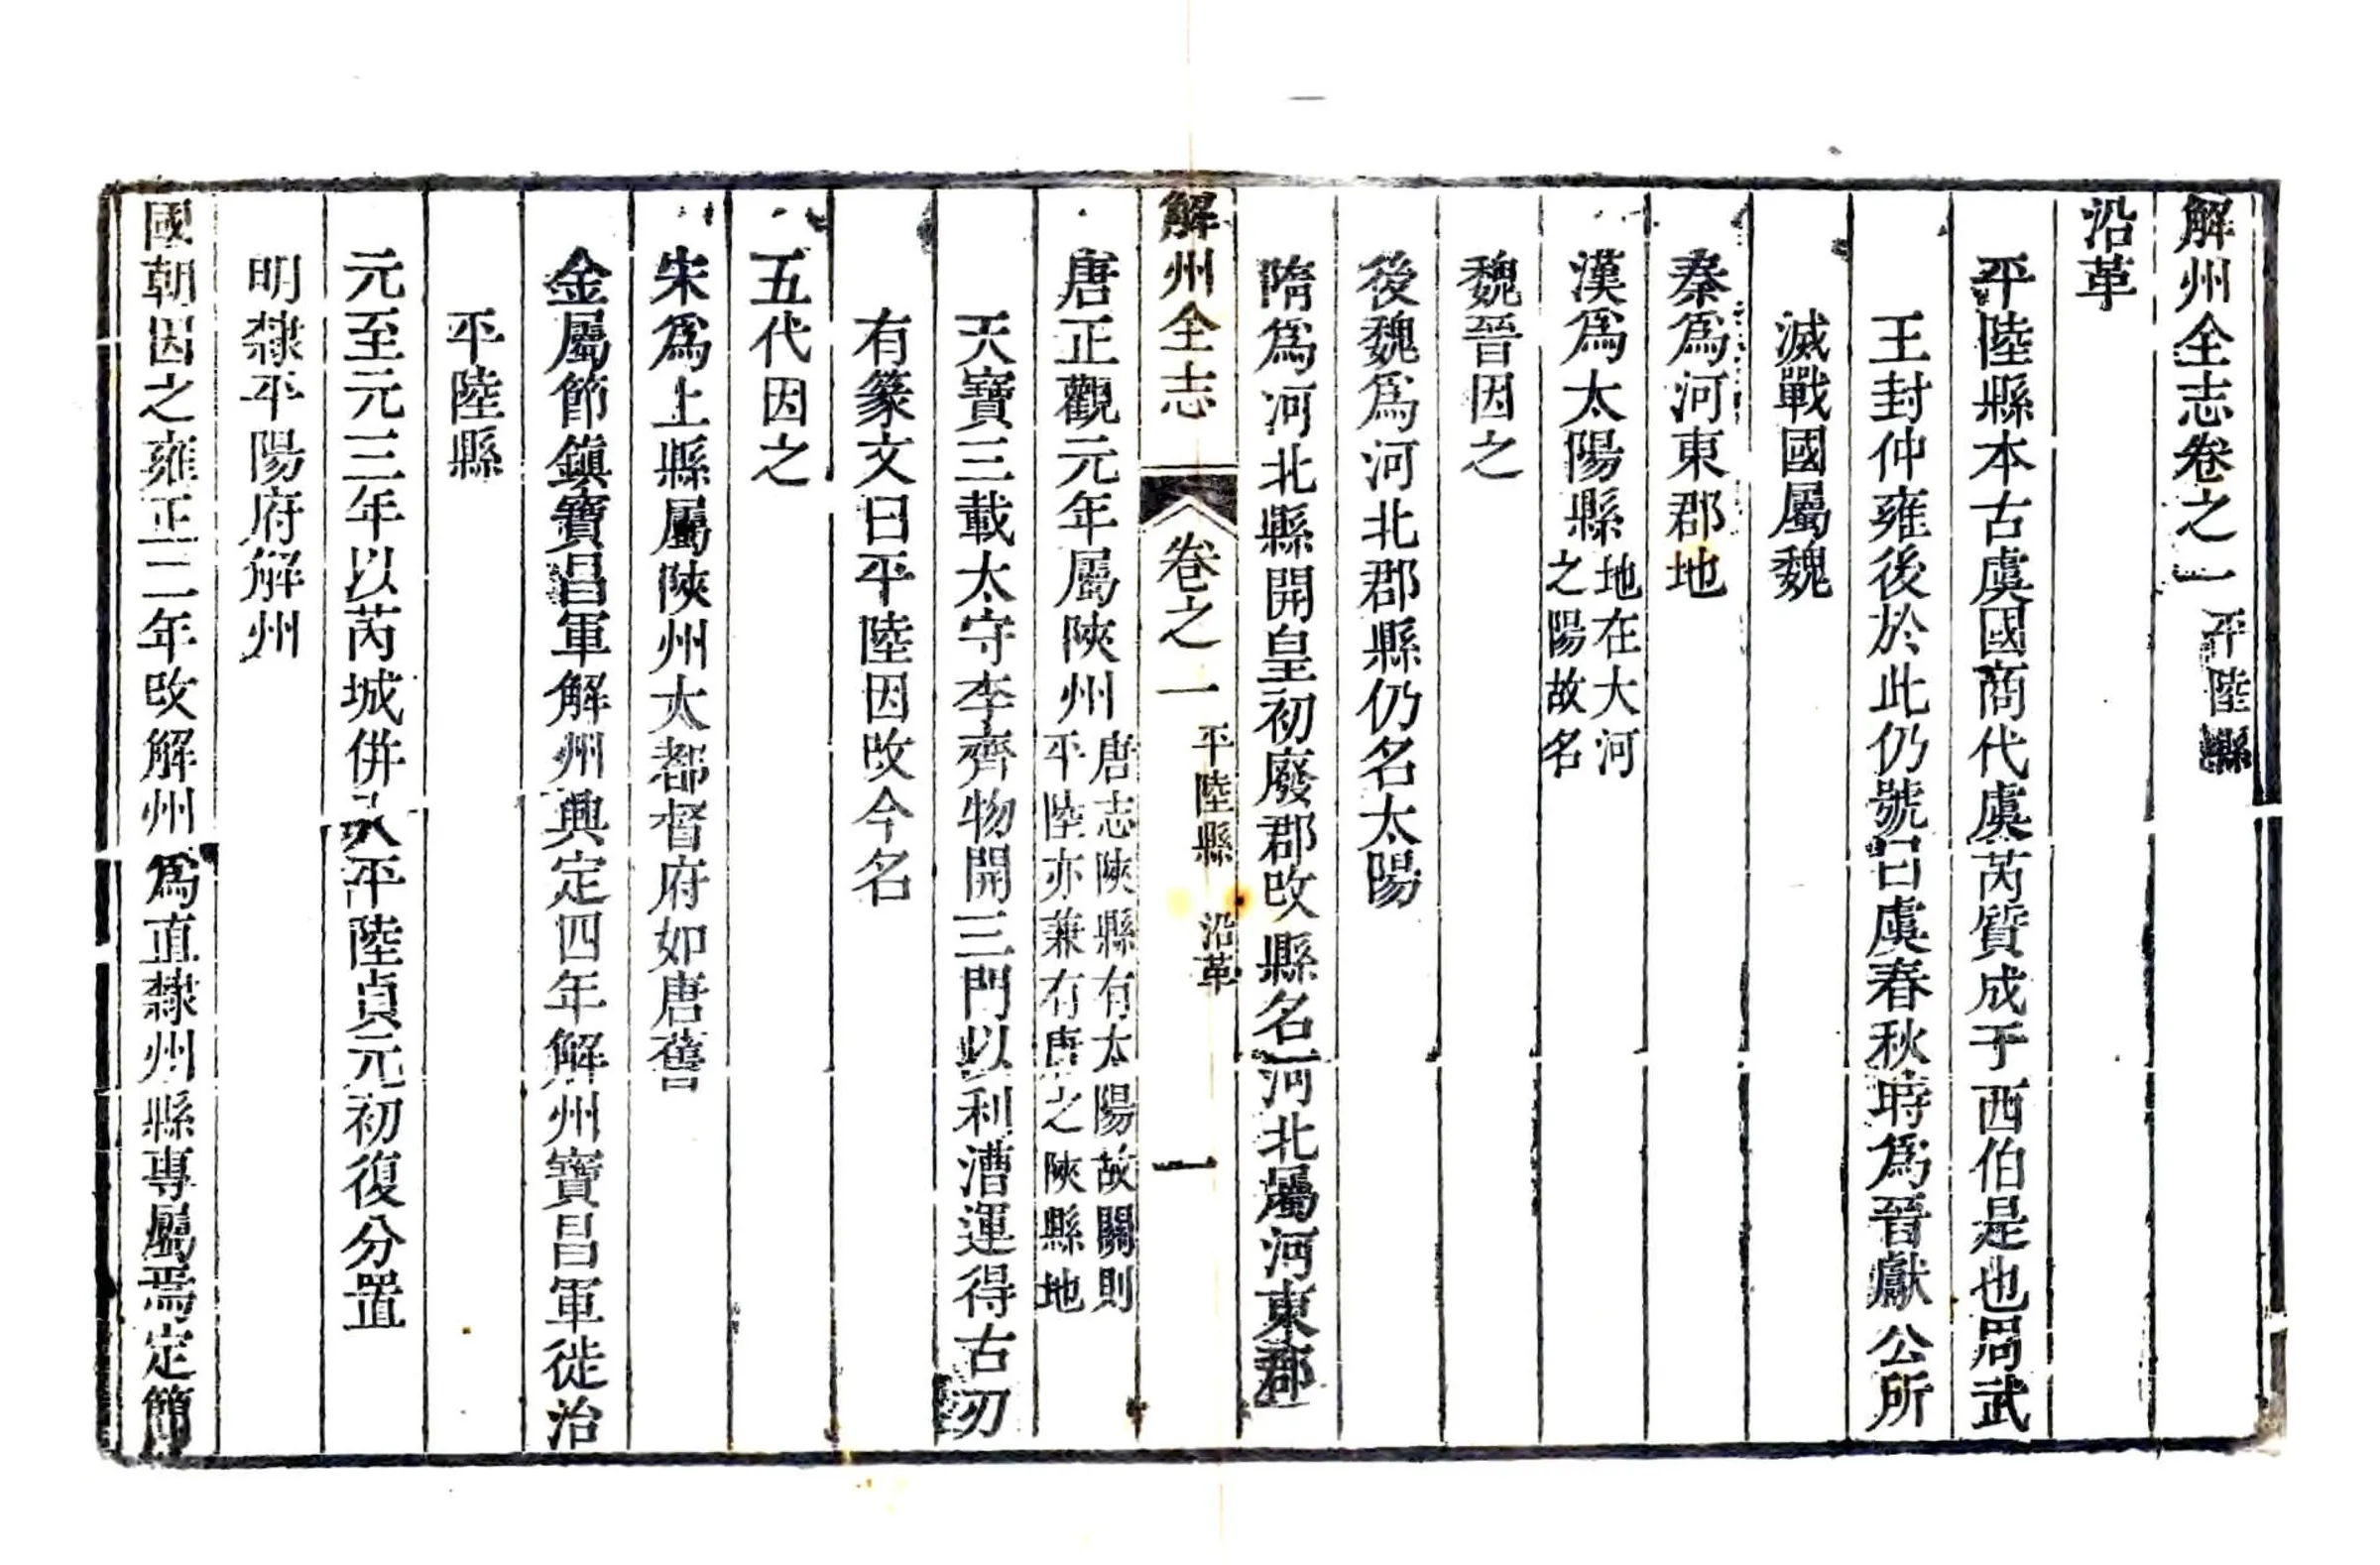 解州全志卷之一 平陸縣
沿革
平陸縣本古虞國商代虞芮質成于西伯是也周武
王封仲雍後於此仍號曰虞春秋時爲晉獻公所
滅戰國屬魏
秦爲河東郡地
漢爲太陽縣地在大河
之陽故名
魏晉因之
後魏爲河北郡縣仍名太陽
隋爲河北縣開皇初廢郡改縣名河北屬河東郡
解州全志 卷之一 平陸縣 沿革 一
唐正觀元年屬陝州唐志陝縣有太陽故關則
平陸亦兼有唐之陝縣地
天寶三載太守李齊物開三門以利漕運得古刃
有篆文曰平陸因改今名
五代因之
宋爲上縣屬陝州大都督府如唐舊
金屬節鎮寶昌軍解州興定四年解州寶昌軍徙治
平陸縣
元至元三年以芮城併入平陸貞元初復分置
明隸平陽府解州
國朝因之雍正二年改解州爲直隸州縣專屬焉定簡